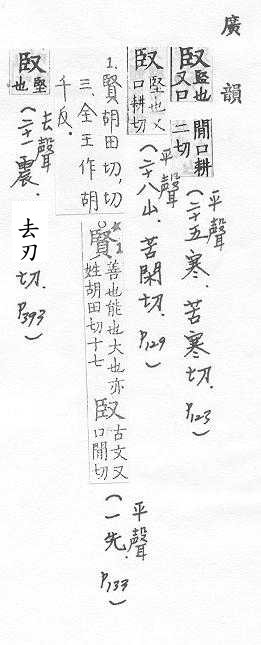 廣韻
臤 堅也又口閒口耕二切 (平聲 二十五寒.苦寒切. P123)
臤 堅也又口耕切 (平聲 二十八山.苦閑切. P129)
1.賢胡田切,切三、全王作胡千反。
賢 善也能也大也亦姓胡田切十七
臤 古文又口閒切 (平聲 一先. P133)
臤 堅也 (去聲 二十一震.去刃切. P393)